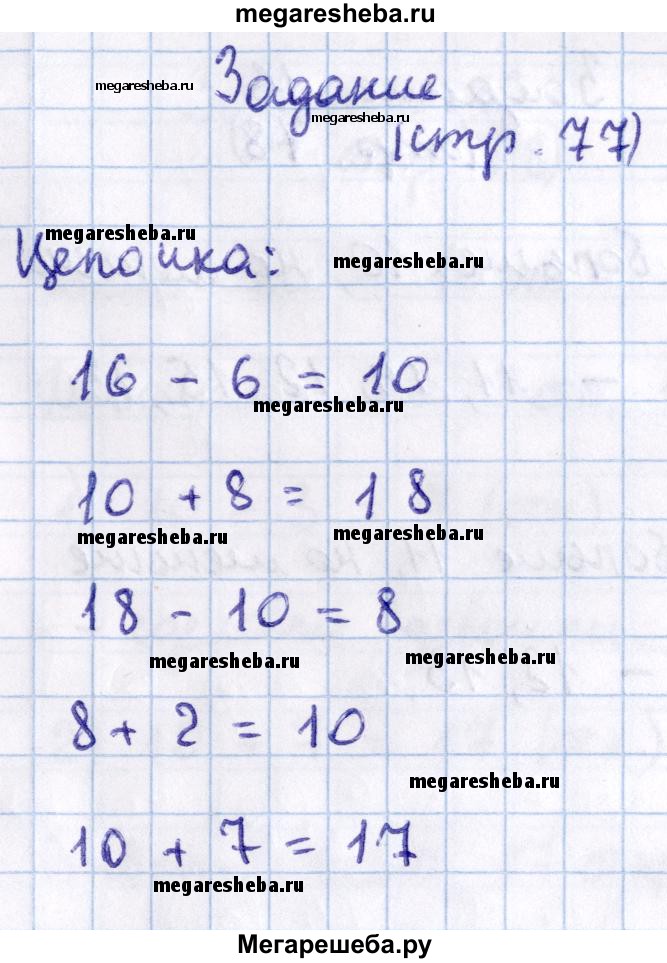 megaresheba.ru
megaresheba.ru
Задание
megaresheba.ru
(стр. 77)
megaresheba.ru
Цепочка:
megaresheba.ru
16 - 6 = 10
megaresheba.ru
10 + 8 = 18
megaresheba.ru
megaresheba.ru
18 - 10 = 8
megaresheba.ru
megaresheba.ru
8 + 2 = 10
megaresheba.ru
10 + 7 = 17
megaresheba.ru
Мегарешеба.ру